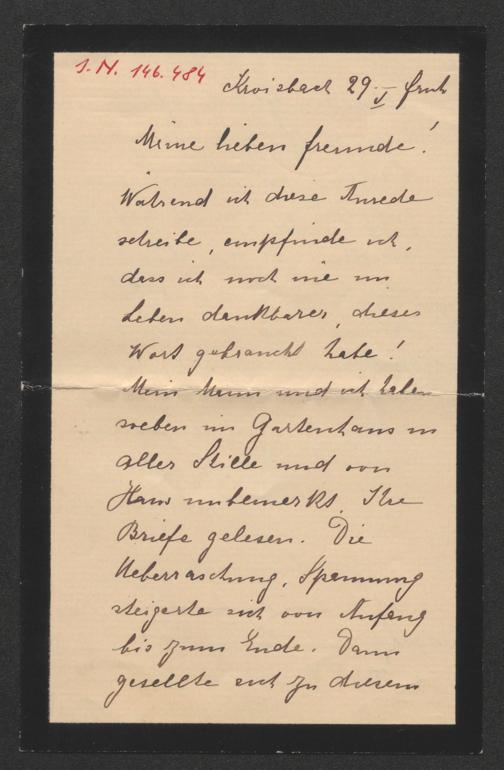 J.N. 146.484
Kroisbach 29. V. früh
Meine lieben Freunde!
Während ich diese Anrede
schreibe, empfinde ich,
dass ich noch nie im
Leben dankbarer, dieses
Wort gebraucht habe!
Mein Mann und ich haben
soeben im Gartenhaus in
aller Stille und von
Hans unbemerkt, Ihre
Briefe gelesen. Die
Ueberraschung, Spannung
steigerte sich von Anfang
bis zum Ende. Dann
gesellte sich zu diesem